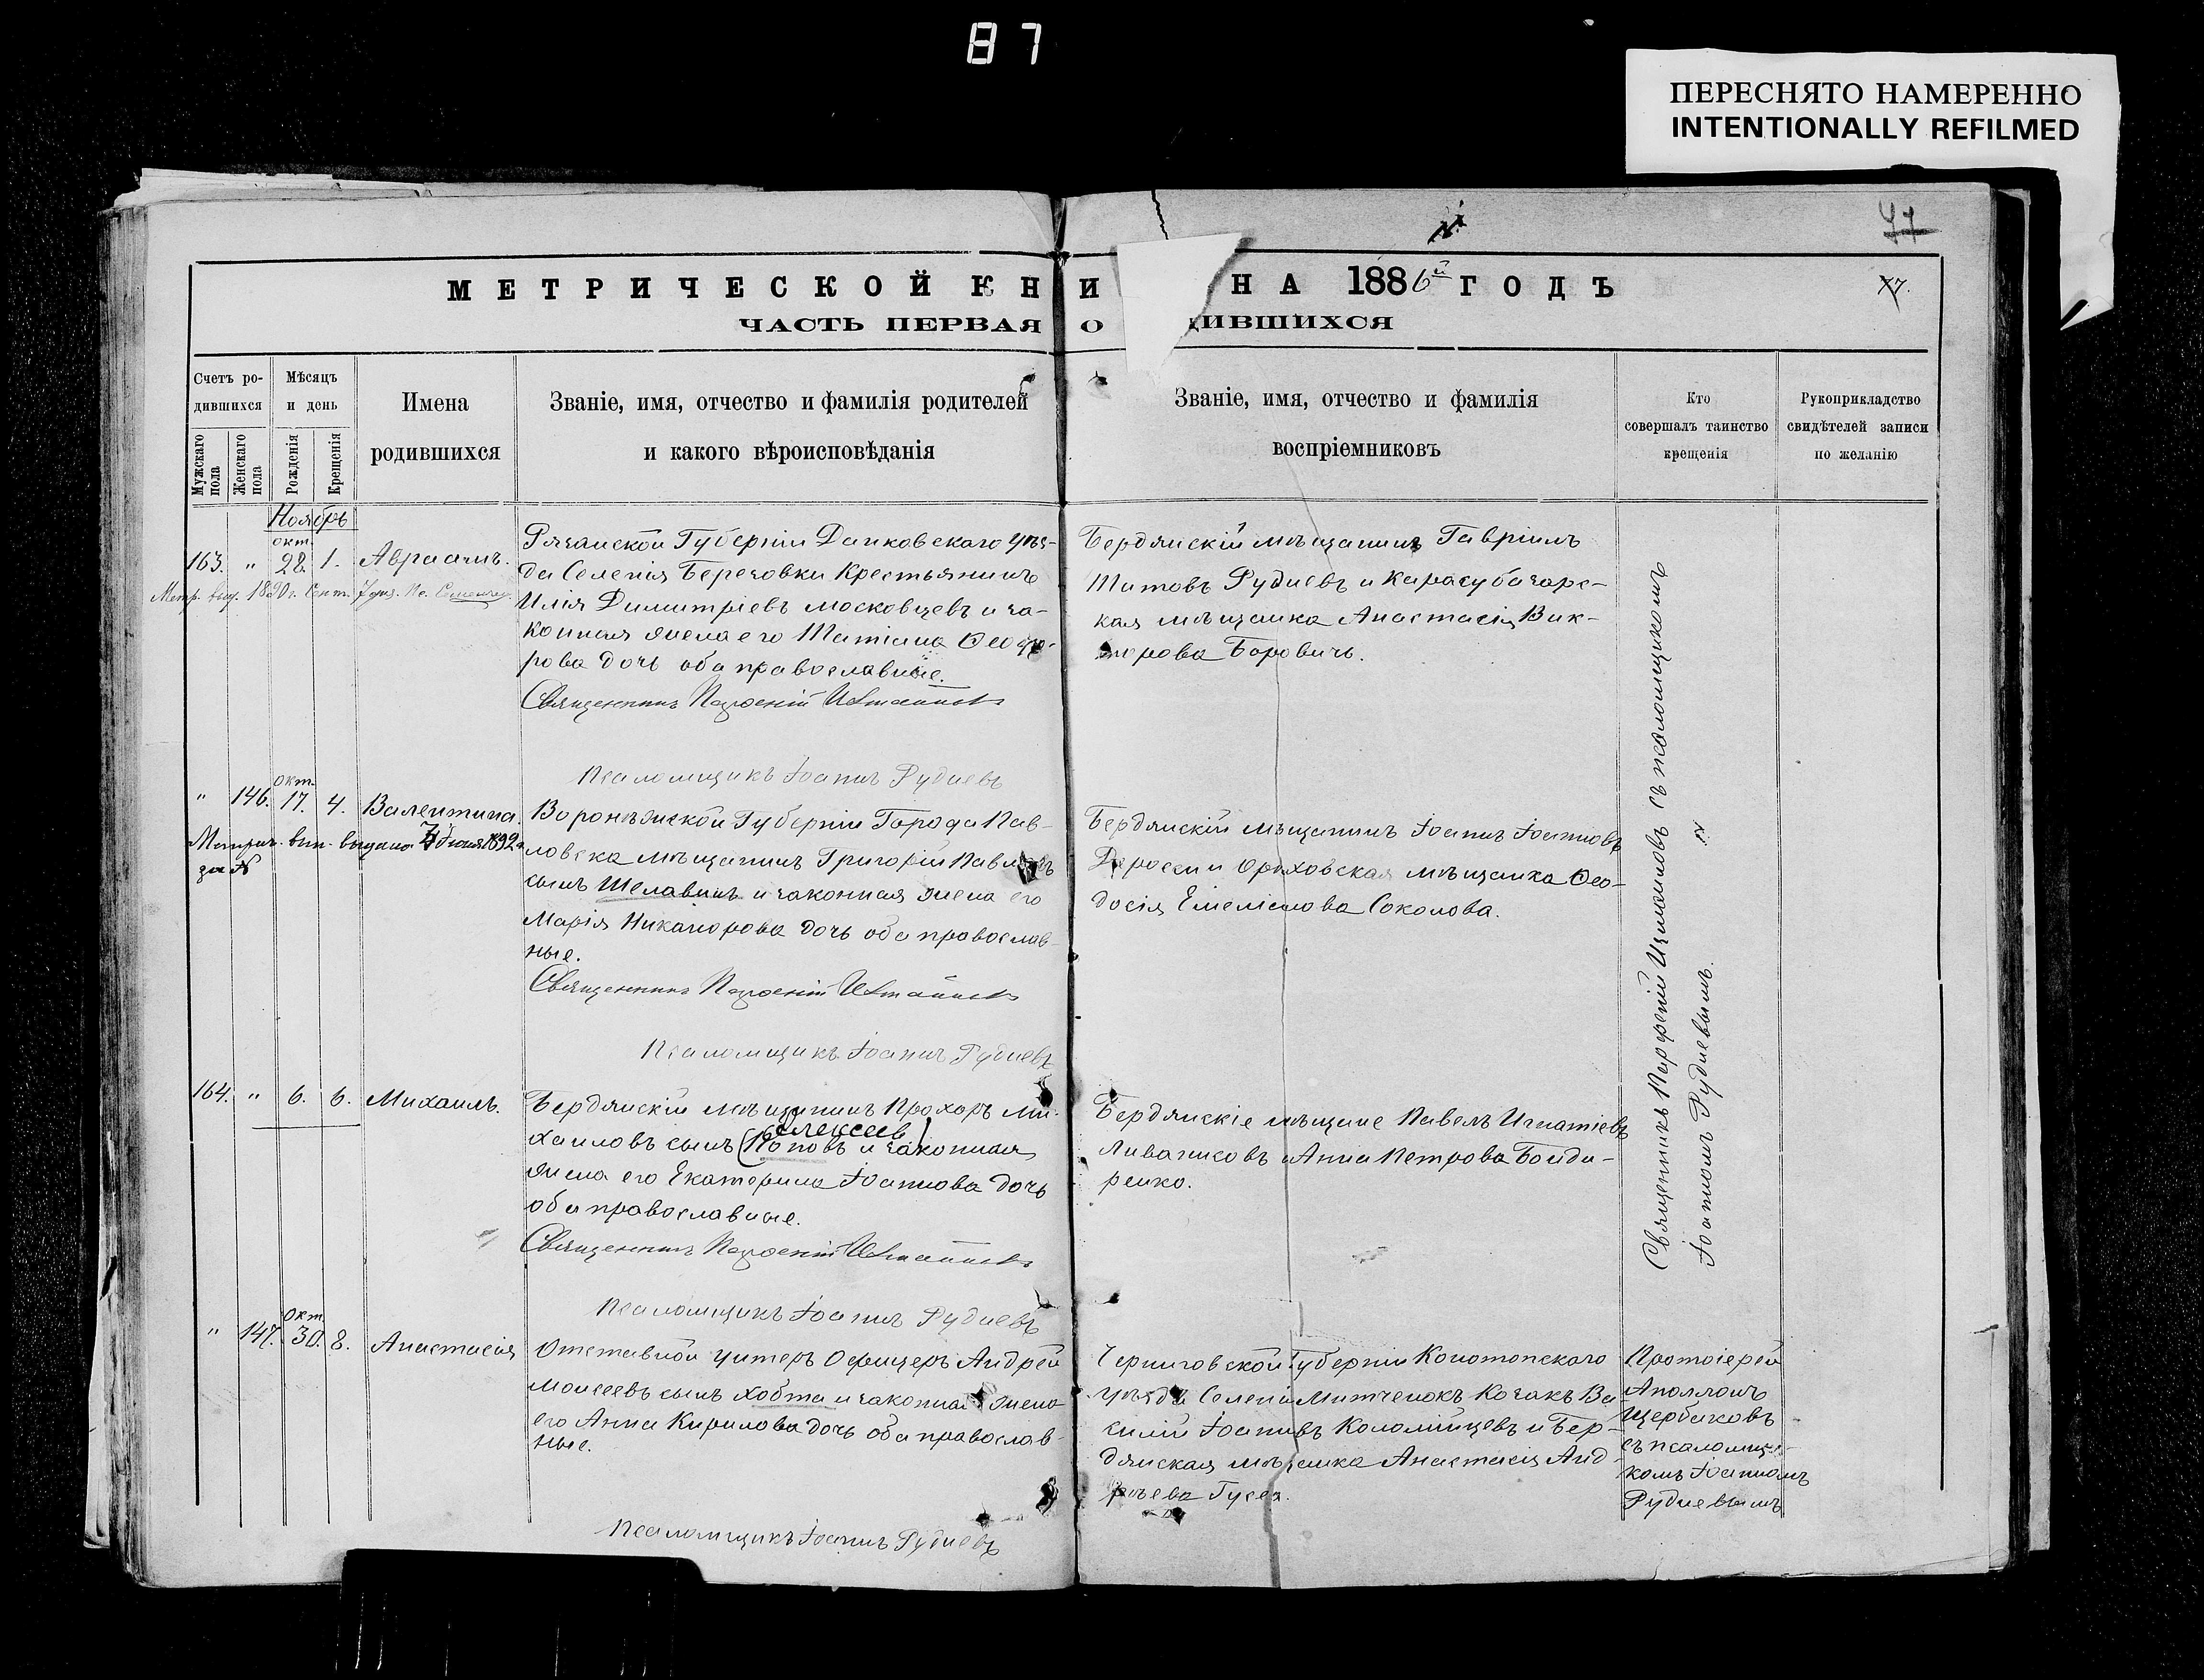 87
ПЕРЕСНЯТО НАМЕРЕННО
INTENTIONALLY REFILMED
77
МЕТРИЧЕСКОЙ КНИ НА 1886й ГОДЪ
77.
ЧАСТЬ ПЕРВАЯ О ДИВШИХСЯ
Счетъ ро-
дившихся
Мужскаго пола
Женскаго пола
Мѣсяцъ
и день
Рожденія
Крещенія
Имена
родившихся
Званіе, имя, отчество и фамилія родителей
и какого вѣроисповѣданія
Званіе, имя, отчество и фамилія
воспріемниковъ
Кто
совершалъ таинство
крещенія
Рукоприкладство
свидѣтелей записи
по желанію
Ноябрь
окт.
163. " 28. 1. Авраамъ.
Метр. выд. 1890 г. Сент. 7 дня.
Рязанской Губерніи Данковскаго уѣз-
да Селенія Березовки Крестьянинъ
Илія Димитріевъ Московцевъ и за-
конная жена его Татіана Ѳеодо-
рова дочь оба православные.
Священникъ Парѳеній Измаиловъ
Псаломщикъ Іоаннъ Рудневъ
Бердянскій мѣщанинъ Гавріилъ
Титовъ Рудневъ и Карасубазарс-
кая мѣщанка Анастасія Вик-
торова Боровичь.
окт.
" 146. 17. 4. Валентина.
Метрич. вып. выдана 7 Июня 1892 г.
за №
Воронѣжской Губерніи Города Пав-
ловска мѣщанинъ Григорій Павловъ
сынъ Шелавинъ и законная жена его
Марія Никанорова дочь оба православ-
ные.
Священникъ Парѳеній Измаиловъ
Псаломщикъ Іоаннъ Рудневъ
Бердянскій мѣщанинъ Іоаннъ Іоанновъ
Дросси и Орѣховская мѣщанка Ѳео-
досія Емеліанова Соколова.
164. " 6. 6. Михаилъ.
Бердянскій мѣщанинъ Прохоръ Ми-
хаиловъ сынъ (Поповъ и законная
Алексеев)
жена его Екатерина Іоаннова дочь
оба православные.
Священникъ Парѳеній Измаиловъ
Псаломщикъ Іоаннъ Рудневъ
Бердянскіе мѣщане Павелъ Игнатіевъ
Ливанковъ и Анна Петрова Бонда-
ренко.
Священникъ Парѳеній Измаиловъ съ псаломщикомъ
Іоанномъ Рудневымъ.
окт.
" 147. 30. 8. Анастасія
Отставной унтеръ Офицеръ Андрей
Моисеевъ сынъ Хобта и законная жена
его Анна Кирилова дочь оба православ-
ные.
Псаломщикъ Іоаннъ Рудневъ
Черниговской Губерніи Конотопскаго
уѣзда Селенія Митченокъ Козакъ Ва-
силій Іоанновъ Коломійцевъ и Бер-
дянская мѣщанка Анастасія Анд-
рѣева Гусева.
Протоіерей
Аполлонъ
Щербаковъ
съ псаломщи-
комъ Іоанномъ
Рудневымъ